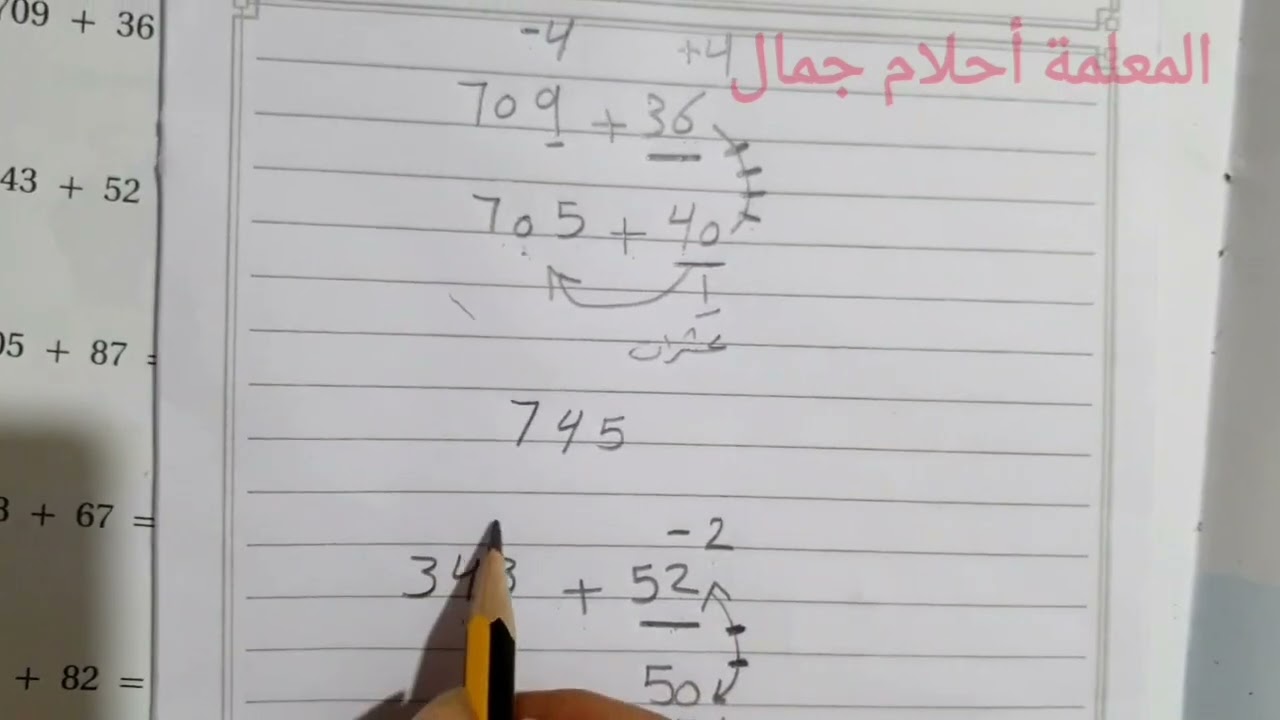 709 + 36
43 + 52
05 + 87 =
3 + 67 =
+ 82 =
المعلمة أحلام جمال
-4 +4
709 + 36
705 + 40
عشرات
745
-2
343 + 52
50